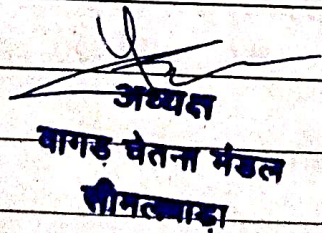 अध्यक्ष
वागड़ चेतना मंडल
सीमलवाड़ा